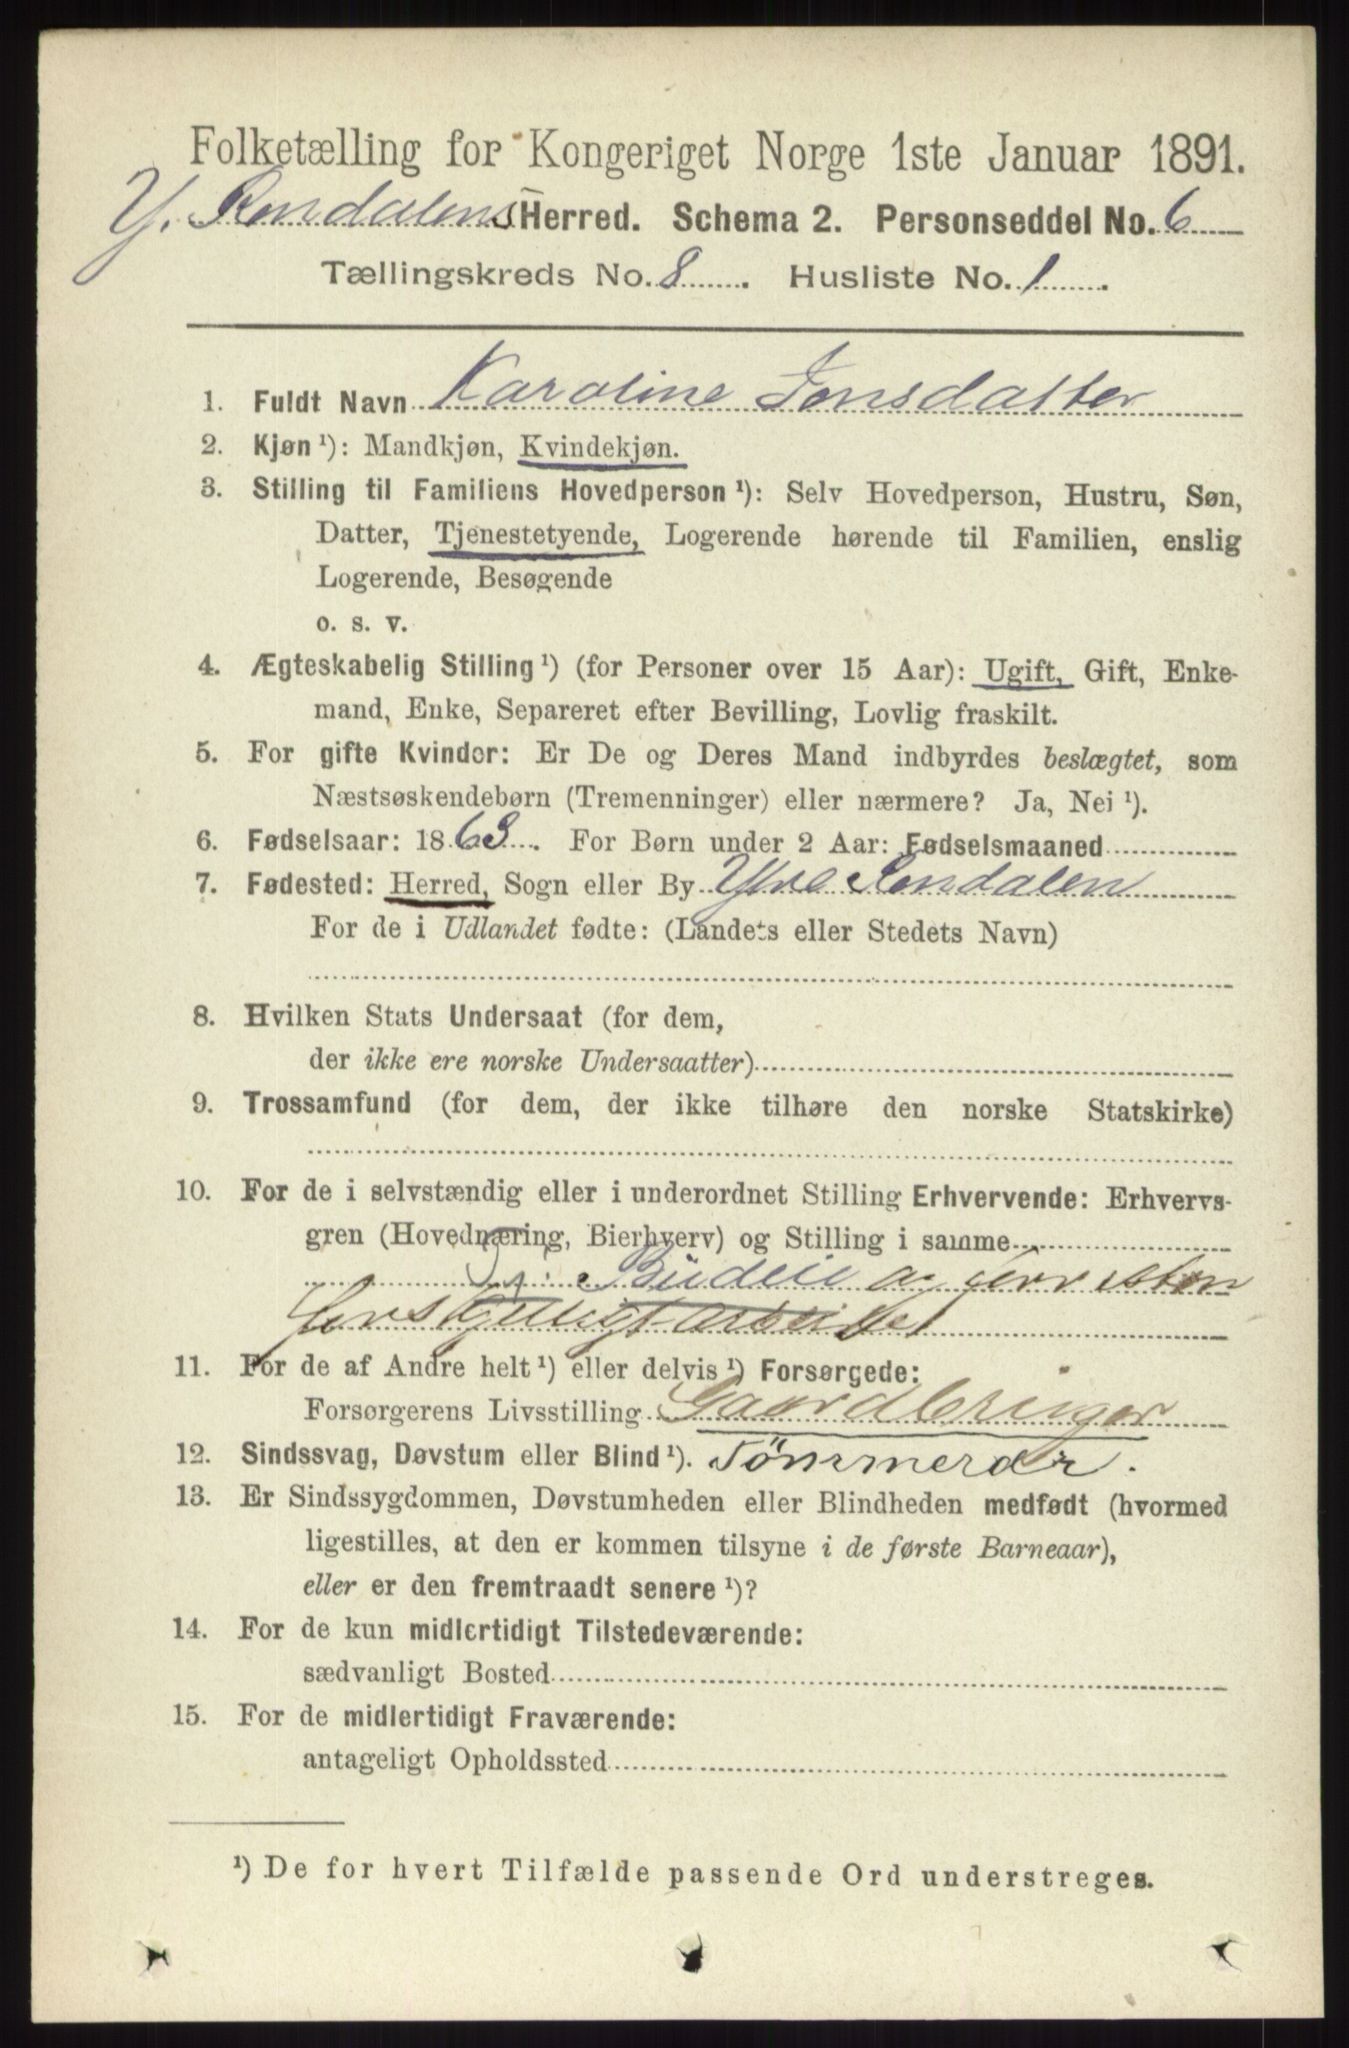 Folketælling for Kongeriget Norge 1ste Januar 1891.
Y. Rendalens Herred. Schema 2. Personseddel No. 6
Tællingskreds No. 8. Husliste No. 1.
1. Fuldt Navn Karoline Jonsdatter
2. Kjøn ¹): Mandkjøn, Kvindekjøn.
3. Stilling til Familiens Hovedperson ¹): Selv Hovedperson, Hustru, Søn,
Datter, Tjenestetyende, Logerende hørende til Familien, enslig
Logerende, Besøgende
o. s. v.
4. Ægteskabelig Stilling ¹) (for Personer over 15 Aar): Ugift, Gift, Enke-
mand, Enke, Separeret efter Bevilling, Lovlig fraskilt.
5. For gifte Kvinder: Er De og Deres Mand indbyrdes beslægtet, som
Næstsøskendebørn (Tremenninger) eller nærmere? Ja, Nei ¹).
6. Fødselsaar: 1863. For Børn under 2 Aar: Fødselsmaaned
7. Fødested: Herred, Sogn eller By Ytre Rendalen
For de i Udlandet fødte: (Landets eller Stedets Navn)
8. Hvilken Stats Undersaat (for dem,
der ikke ere norske Undersaatter)
9. Trossamfund (for dem, der ikke tilhøre den norske Statskirke)
10. For de i selvstændig eller i underordnet Stilling Erhvervende: Erhvervs-
gren (Hovednæring, Bierhverv) og Stilling i samme
Budeie og forresten
forskjelligt arbeide
11. For de af Andre helt ¹) eller delvis ¹) Forsørgede:
Forsørgerens Livsstilling Gaardbruger
12. Sindssvag, Døvstum eller Blind ¹). Tømmerdr.
13. Er Sindssygdommen, Døvstumheden eller Blindheden medfødt (hvormed
ligestilles, at den er kommen tilsyne i de første Barneaar),
eller er den fremtraadt senere ¹)?
14. For de kun midlertidigt Tilstedeværende:
sædvanligt Bosted
15. For de midlertidigt Fraværende:
antageligt Opholdssted
¹) De for hvert Tilfælde passende Ord understreges.